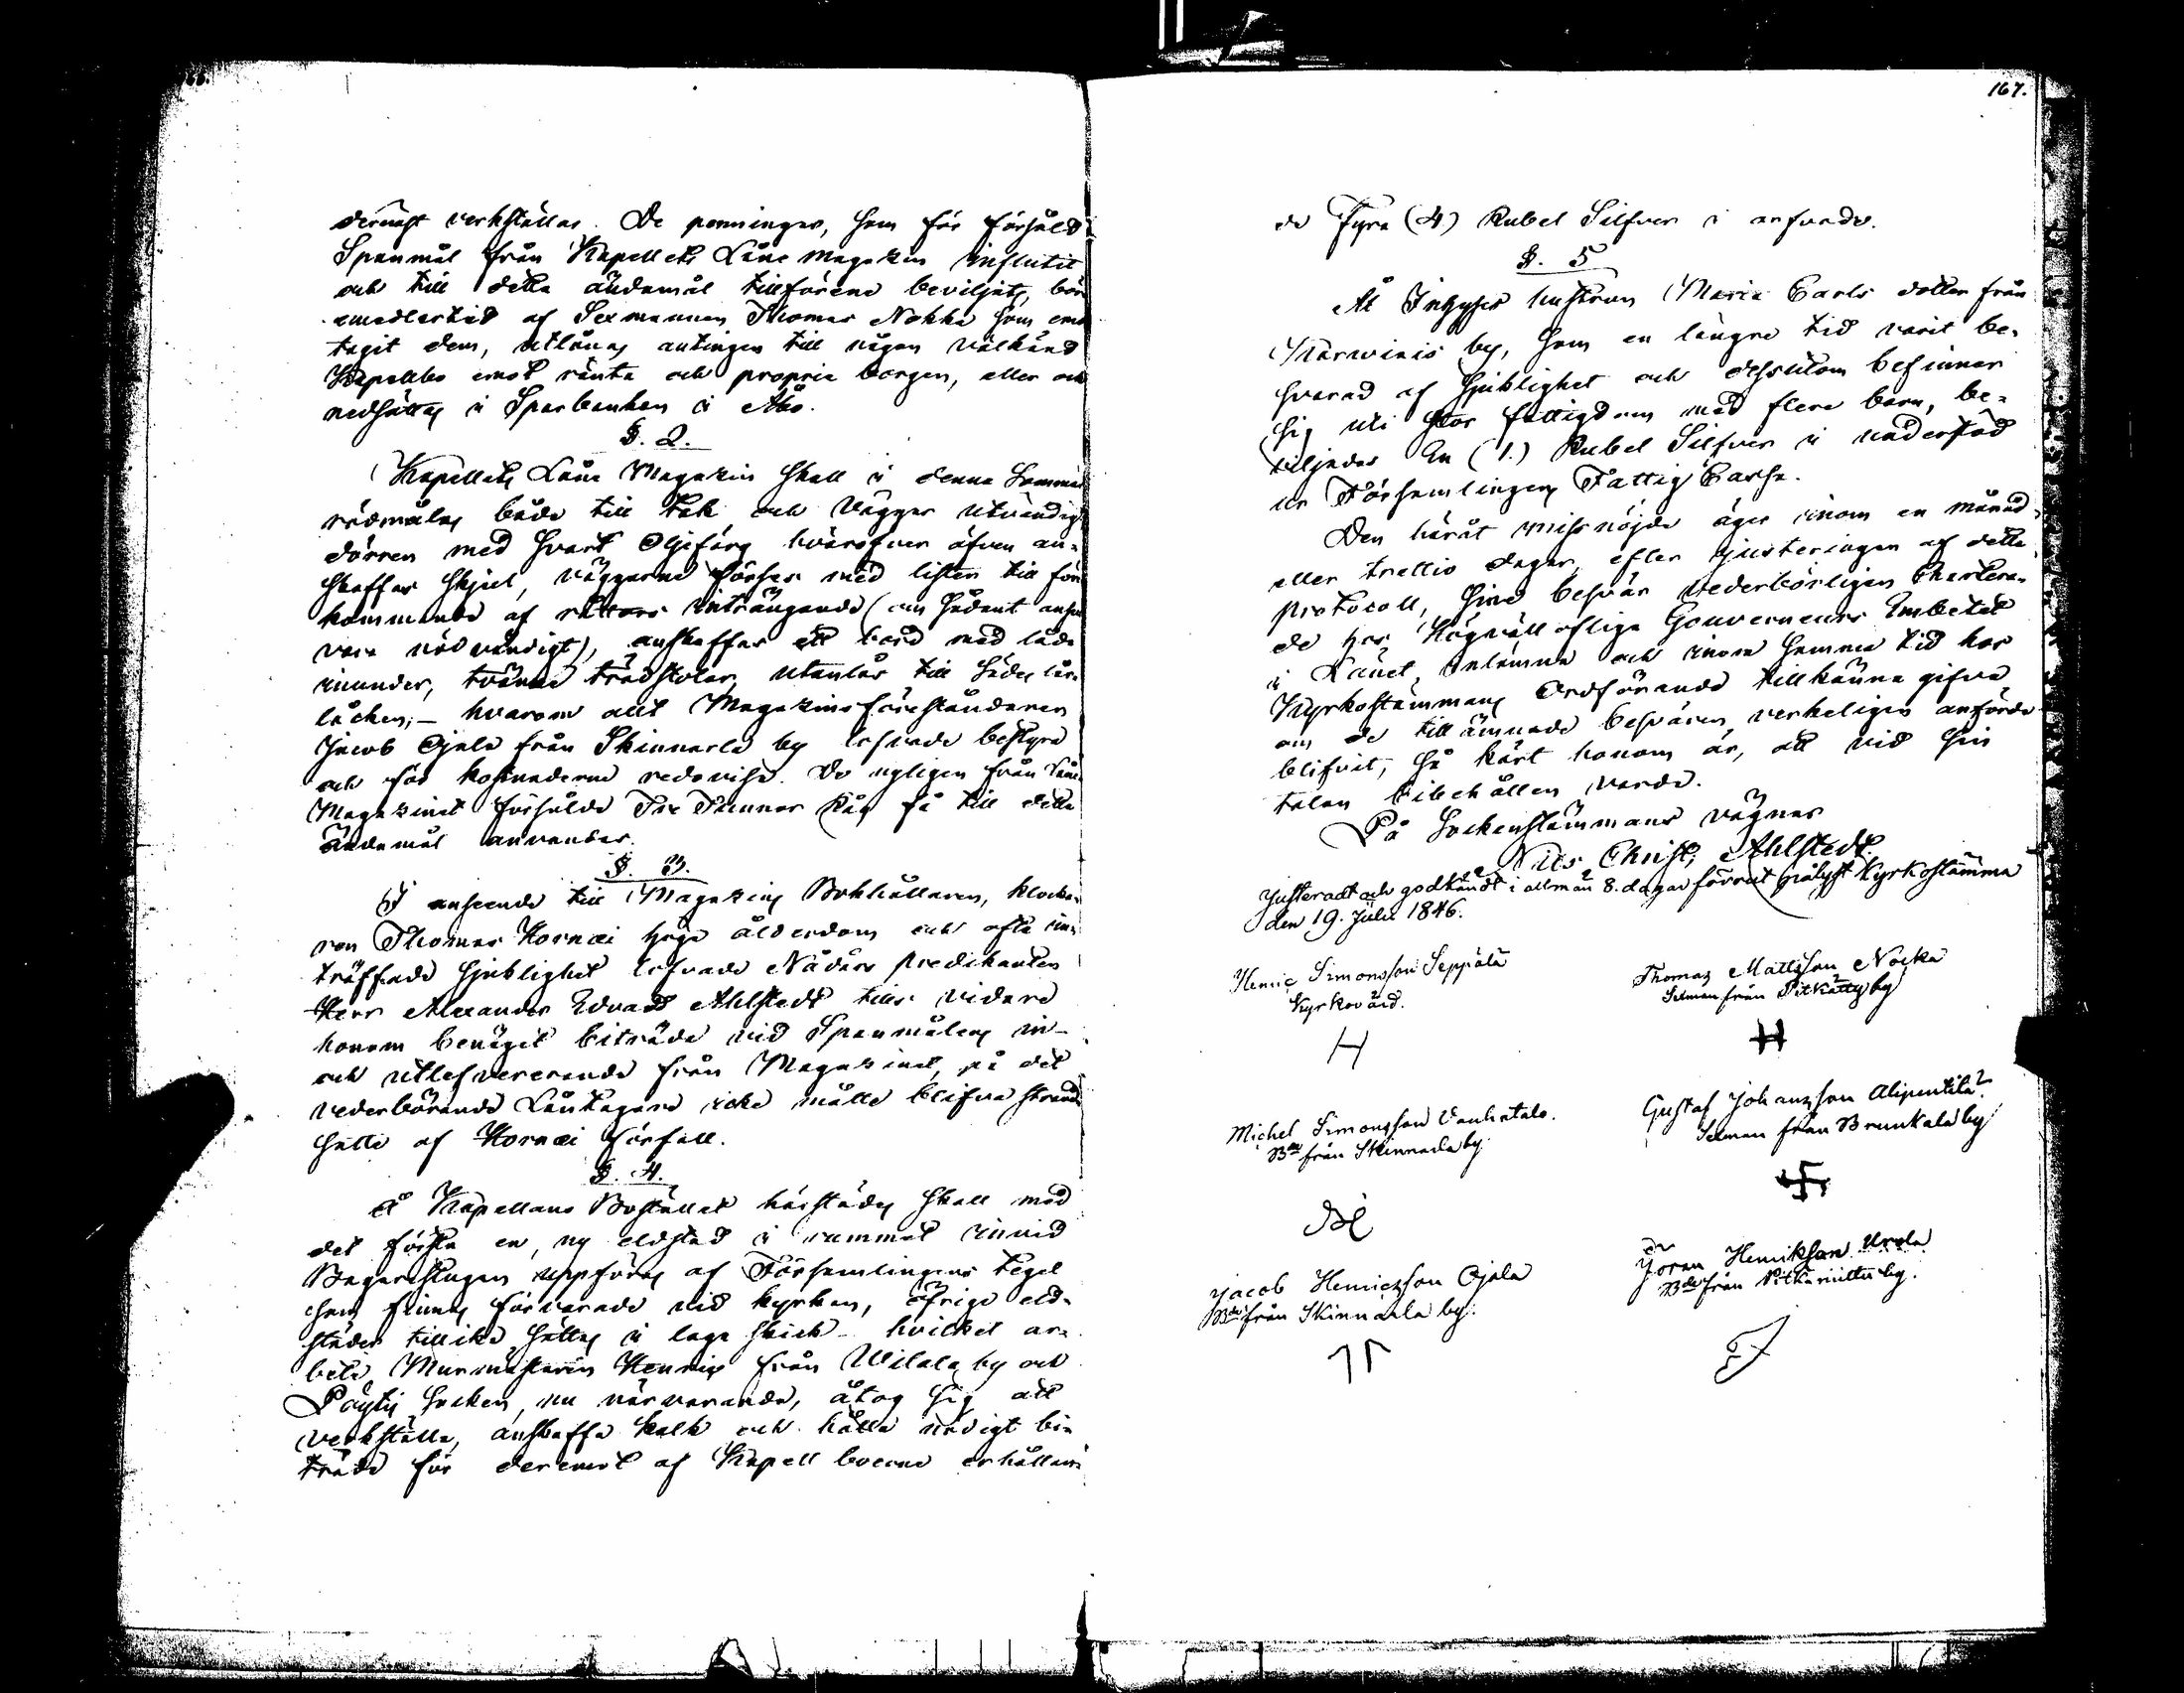 166.
dernäst verkställas. De penningar, som för försåld
Spanmål från Kapellets Låne magazin influtit
och till detta ändamål tillförene beviljats, bör
emedlertid af Sexmannen Thomas Nokka som emo
tagit dem, utlånas antingen till någon välkänd
Kapellbo emot ränta och proprie borgen, eller och
nedsättas i Sparbanken i Åbo.
§. 2.
Kapellets Låne Magazin skall i denna Sommar
rödmålas både till tak och väggar utvändigt
dörren med svart Oljefärg hvarofver äfven an-
skaffas skjul, väggarne förses med lister till före
kommande af råttors inträngande (om sådant anses
vara nödvändigt), anskaffas ett bord med låda
inunder, tvänne trädstolar, utanlås till Sädes lår-
låcken; – hvarom allt Magazinsföreståndaren
Jacob Ojala från Skinnarla by lofvade bestyra
och för kostnaderne redovisa. De nyligen från Låne
Magazinet försålde Tre Tunnor Råg få till detta
Ändamål användas.
§. 3.
I anseende till Magazins Bokhållaren, klocka-
ren Thomas Kornæi höga ålderdom och ofta in-
träffade sjuklighet lofvade Nådårs predikanten
Herr Alexander Edvard Ahlstedt tills vidare
honom benäget biträda vid Spanmålens in-
och utlefvererande från Magazinet, på det
vederbörande Låntagare icke måtte blifva strand
satte af Kornæi förfall.
§. 4.
Å Kapellans Bostället härstädes skall med
det första en ny eldstad i rummet invid
Bagarstugan uppföras af Församlingens tegel
som finnas förvarade vid kyrkan, öfrige eld-
städer tillika sättas i laga skick – hvilket ar-
bete Murmästaren Henric från Wilala by och
Pöytis Socken, nu närvarande, åtog sig att
verkställa, anskaffa kalk och hålla nödigt bi-
träde för deremot af Kapell boerne erhållan-
167.
de Fyra (4) Rubel Silfver i arfvode.
§. 5
Åt hustrun Maria Carls dotter från
by, som en längre tid varit be-
svarad af sjuklighet och dessutom befinner
sig uti stor fattigdom med flera barn, be-
viljades En (1.) Rubel Silfver i understöd
ur Församlingens Fattig Cassa.
Den häråt missnöjde äger inom en månad
eller trettio dagar, efter justeringen af detta
protocoll, sine besvär vederbörligen Chartera-
de hos Högvällofliga Gouverneurs Embetet
i Länet, inlämna och inom samma tid hos
Kyrkostämmans Ordförande tillkänna gifva
om de tillämnade besvären verkeligen anförde
blifvit, så kärt honom är, att vid sin
talan bibehållen varda.
På Sockenstämmans vägnar
Nils Christ. Ahlstedt.
Justeradt och godkändt i allmän 8. dagar förrut pålyst Kyrkostämma
den 19. Julii 1846.
Henric Simonsson Seppälä
Kyrkovärd.
H
Thomas Mattsson Nocka
Sexman från Pitkäniitty by
Michel Simonsson Vanhatalo.
Bde från Skinnarla by.
Gustaf Johansson Alipentilä
Sexman från Brunkala by
Jacob Henricsson Ojala
Bde från Skinnarla by.
Jöran Henriksson Urola
Bde från Pitkäniittu by.